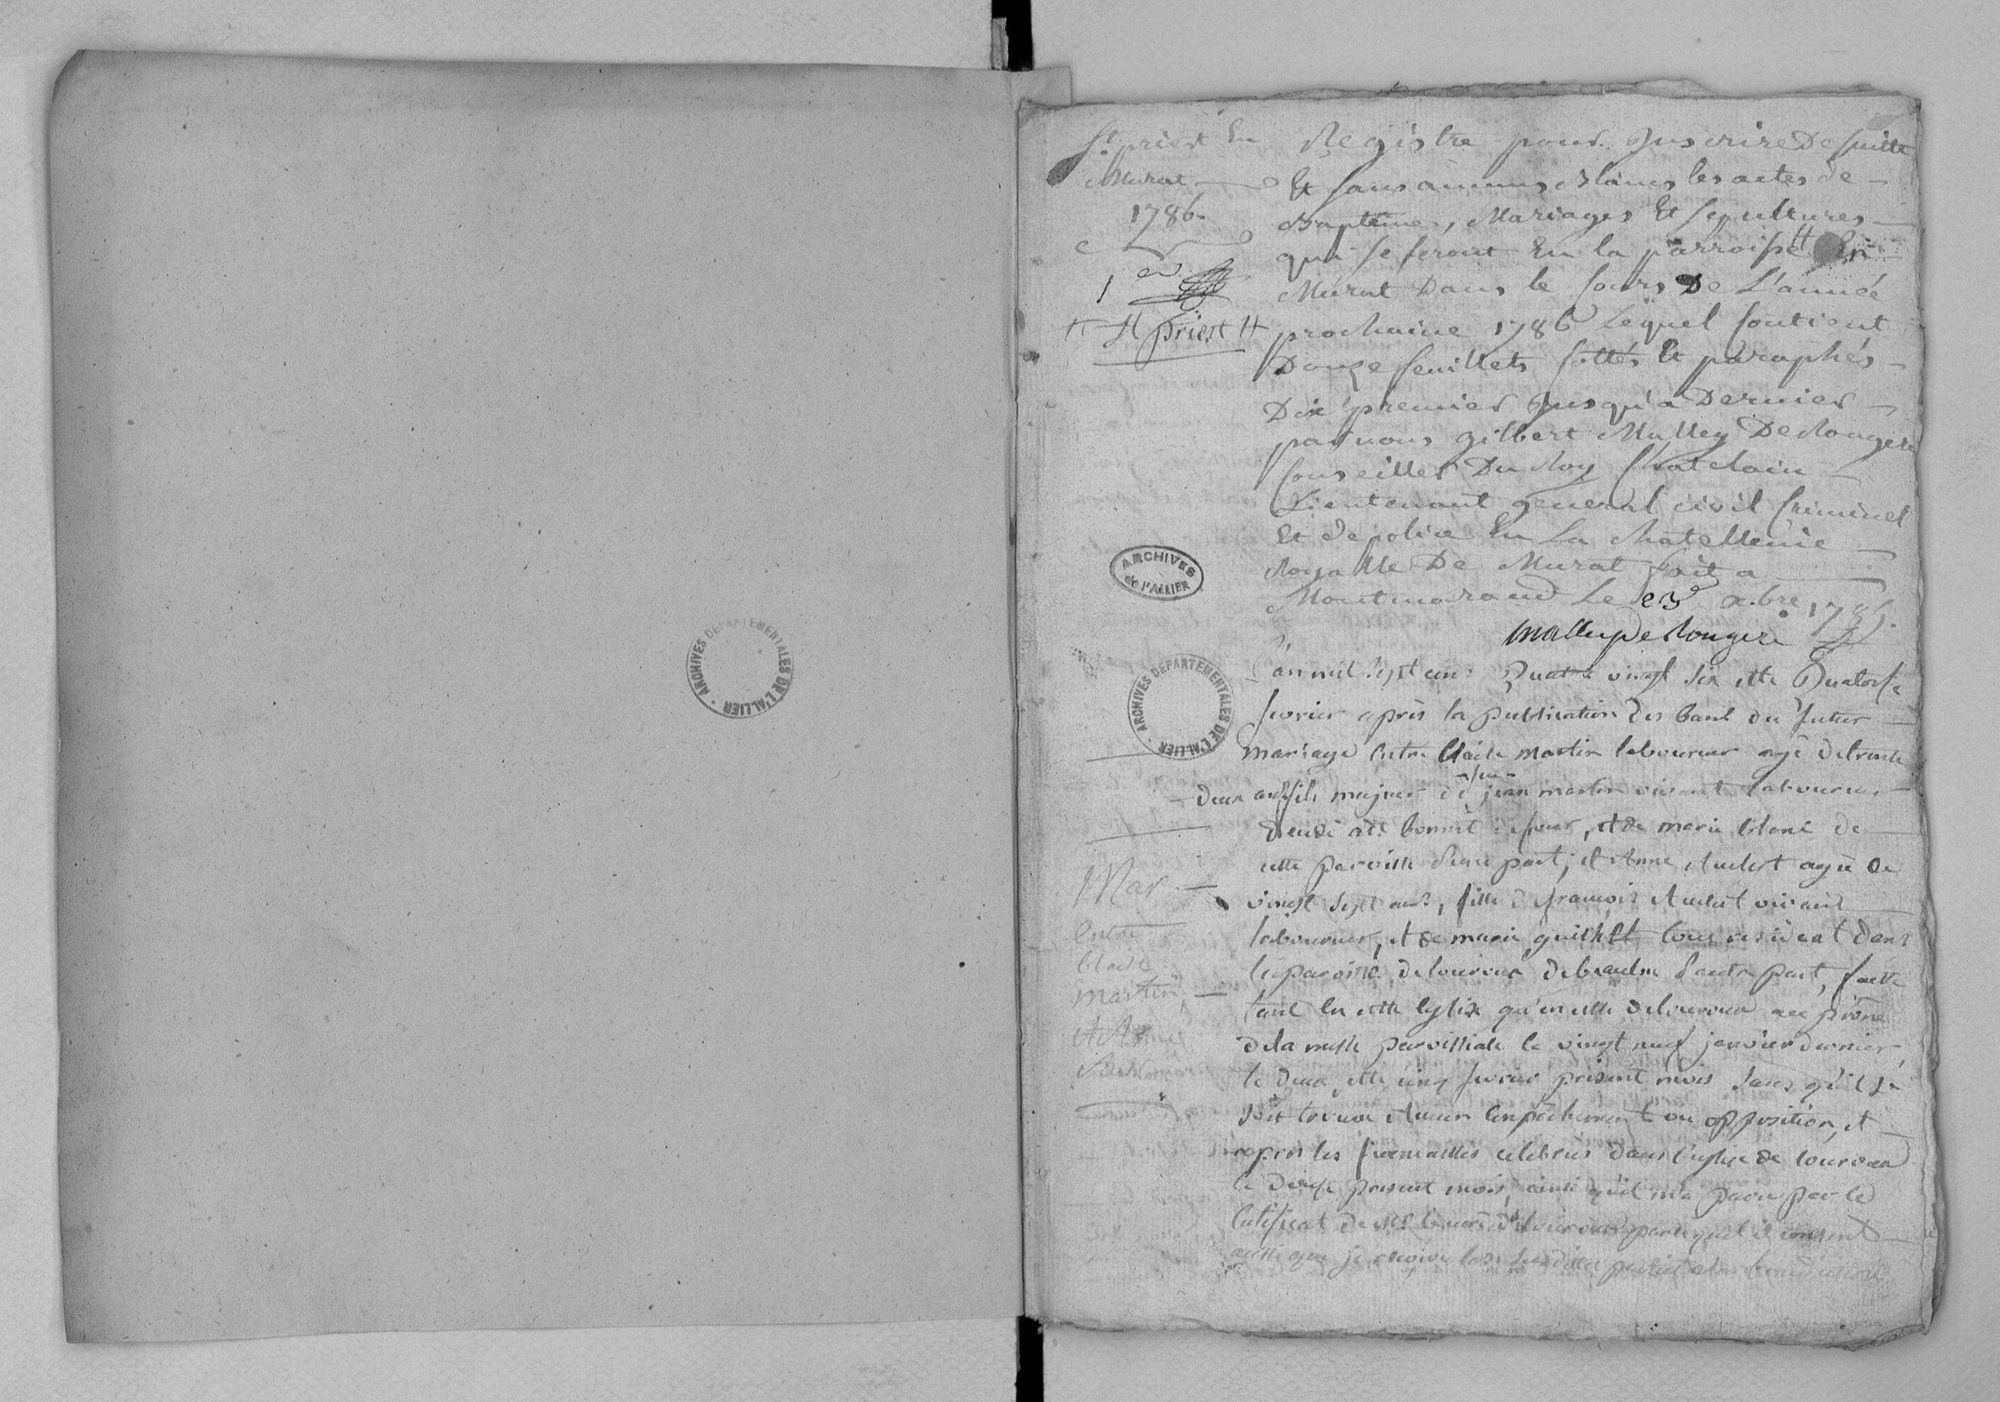 St priest En
Murat
1786.
1er
St priest
Registre pour Inscrire De suitte
Et sans aucuns Blancs les actes de
Baptemes, Mariages Et sepultures
qui se feront En la parroisse En
Murat Dans le Cours De L'année
prochaine 1786 Lequel Contient
Douze feuillets Cottés Et paraphés
premier Jusqu'a Dernier
par nous gilbert Mallley De Rougere
Conseiller Du Roy Chatelain
Lieutenant general civil Criminel
Et de police En La Chatellenie
Royalle De Murat fait a
Montmaraud Le 23 xbre 1785.
Malley De Rougere
ARCHIVES
de L'ALLIER
ARCHIVES DEPARTEMENTALES DE L'ALLIER
ARCHIVES DEPARTEMENTALES DE L'ALLIER
Mar
Entre
blaise
martin,
et Anne
L'an mil sept cens quatre vingt six et le quatorse
fevrier après la publication des bans du futur
mariage entre blaise martin laboureur agé de trente
deux ans fils majeur de feu jean martin vivant laboureur
a St bonnet de four, et de marie blanc de
cette paroisse d'une part; et Anne Aubert agée de
vingt sept ans, fille de françois Aubert vivant
laboureur, et de marie guillot tous residant dans
la paroisse de louroux debeaulne d'autre part, faitte
tant en cette Eglise qu'en celle de louroux au prône
de la messe paroissiale le vingt neuf janvier dernier,
le deux, et le cinq fevrier présent mois sans qu'il s'i
soit trouvé Aucun Empêchement ou opposition, et
apres les fiancailles celebrées dans l'église de louroux
le present mois, ainsi qu'il m'a paru par le
Certificat de Mr le curé de louroux par lequel il consent
aussi que je